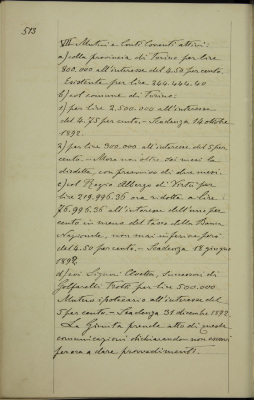 513
VII Mutui e Conti Correnti attivi:
a) colla provincia di Torino per lire
800.000 all'interesse del 4.50 per cento.
Esistente per lire 364.444.40
b) col comune di Torino:
1) per lire 2.500.000 all'interesse
del 4.75 per cento. - Scadenza 14 ottobre
1892.
2) per lire 300.000 all'interesse del 5 per
cento. - Mora non oltre sei mesi la
disdetta, con preavviso di due mesi.
c) col Regio Albergo di Virtù per
lire 219.996.36 ora ridotto a lire
76.996.36 all'interesse dell'uno per
cento in meno del tasso della Banca
Nazionale, non mai inferiore però
del 4.50 per cento. - Scadenza 18 giugno
1892.
d) coi Signori eredi, successori di
Golfarelli per lire 500.000
Mutuo ipotecario all'interesse del
5 per cento. - Scadenza 31 dicembre 1892.
La Giunta prende atto di queste
comunicazioni dichiarando non esservi
per ora a dare provvedimenti.